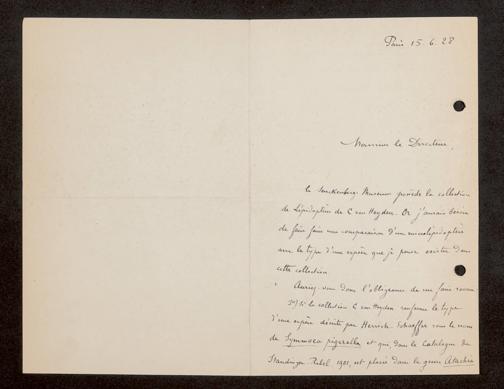 Paris 15.6.28
Monsieur le Directeur,
Le Senckenberg-Museum possède la collection
de Lépidoptères de C von Heyden. Or j'aurais besoin
de faire faire une comparaison d'un microlépidoptère
avec le type d'une espèce que je pense exister dans
cette collection
Auriez-vous donc l'obligeance de me faire savoir
si la collection C von Heyden renferme le type
d'une espèce décrite par Herrich-Schaeffer sous le nom
de Symmoca pigerella et qui, dans le Catalogue de
Staudinger Rebel 1901, est placée dans le genre Atachia